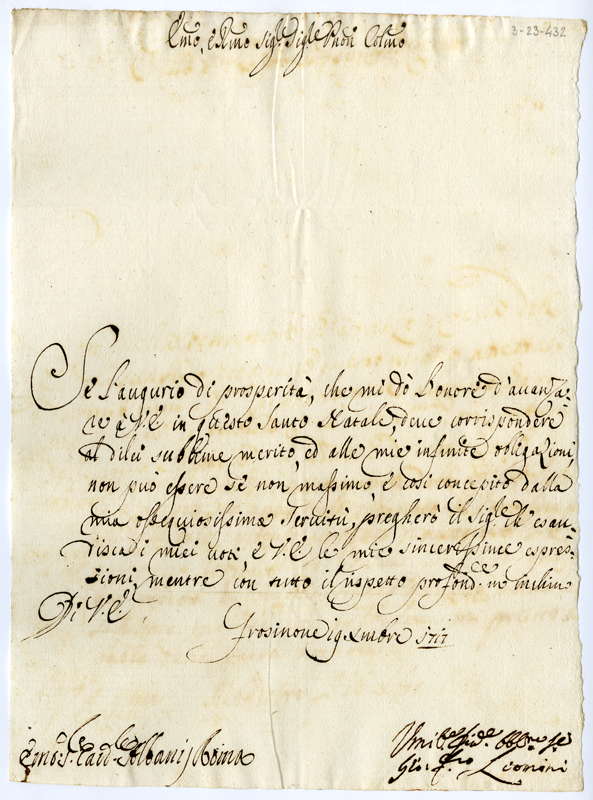 Em̃o, e Rm̃o Sig.r Sig.re Pñon Colm̃o
3-23-432
Se l'augurio di prosperità, che mi dò l'onore d'avanza-
re à V.E. in questo Santo Natale, deve corrispondere
al dilei sublime merito, ed alle mie infinite obligazioni,
non può essere se non massimo, e così concepito dalla
mia ossequiosissima servitù, pregherò il Sig.re ch'esau-
disca i miei voti, e V.E. le mie sincerissime espres-
sioni, mentre con tutto il rispetto prof.e m'inchino
Di V.E.
Frosinone 19 Xmbre 1717
Em̃o S.e Card.le Albani, Roma
Umil.e obb.mo Se.
Gio: Leonini